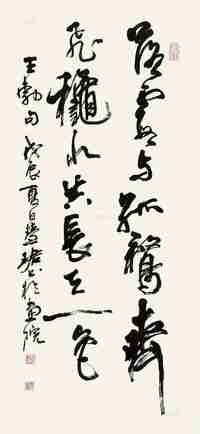 落霞与孤鹜齐
飞秋水共长天一色
王勃句 戊辰夏日楚璩书于画院